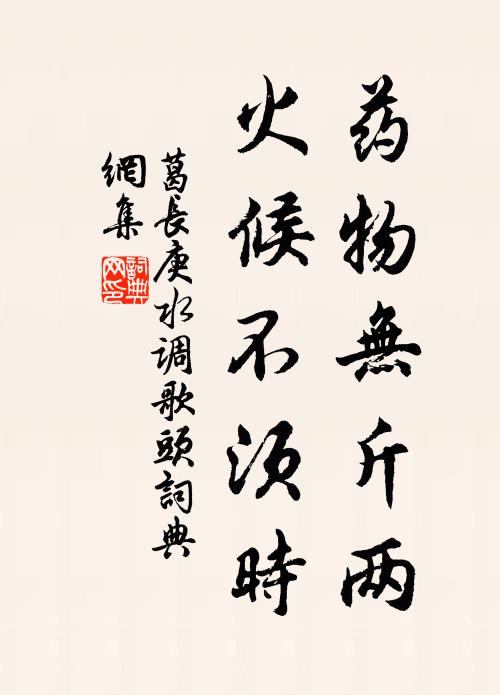 药物無斤两
火候不须時
葛長庚水调歌頭詞典
網集
詞典
网印